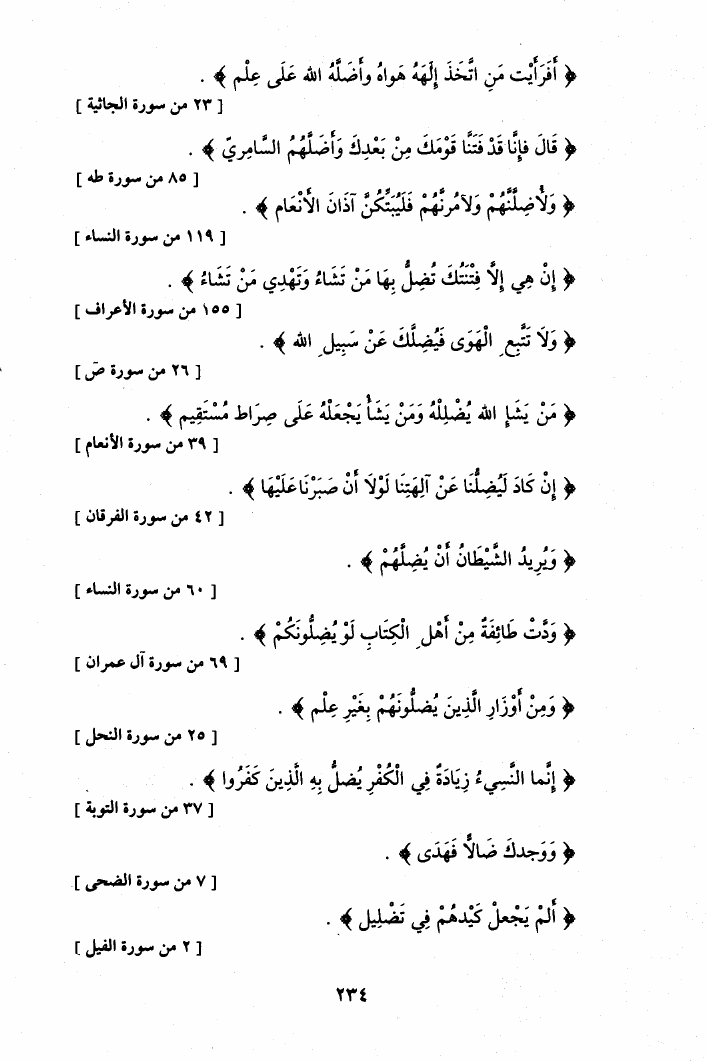 ﴿ أَفَرَأَيْت مَنِ اتَّخَذَ إِلَهَهُ هَواهُ وأَضَلَّهُ الله عَلَى عِلْم ﴾ .
[ ٢٣ من سورة الجاثية ]
﴿ قَالَ فإِنَّا قَدْ فَتَنَّا قَوْمَكَ مِنْ بَعْدِكَ وَأَضَلَّهُمُ السَّامِريّ ﴾ .
[ ٨٥ من سورة طه ]
﴿ وَلأُضِلَّنَّهُمْ وَلآمُرنَّهُمْ فَلَيُبَتِّكُنَّ آذَانَ الأَنْعَام ﴾ .
[ ١١٩ من سورة النساء ]
﴿ إِنْ هِي إِلاَّ فِتْنَتُكَ تُضِلُّ بِهَا مَنْ تَشَاءُ وَتَهْدِي مَنْ تَشَاءُ ﴾ .
[ ١٥٥ من سورة الأعراف ]
﴿ وَلَا تَتَّبِعِ الْهَوَى فَيُضِلَّكَ عَنْ سَبِيلِ الله ﴾ .
[ ٢٦ من سورة صَ ]
﴿ مَنْ يَشَإِ الله يُضْلِلْهُ وَمَنْ يَشَأْ يَجْعَلْهُ عَلَى صِرَاط مُسْتَقِيم ﴾ .
[ ٣٩ من سورة الأنعام ]
﴿ إِنْ كَادَ لَيُضِلُّنَا عَنْ آلِهَتِنَا لَوْلَا أَنْ صَبَرْنَا عَلَيْهَا ﴾ .
[ ٤٢ من سورة الفرقان ]
﴿ وَيُرِيدُ الشَّيْطَانُ أَنْ يُضِلَّهُمْ ﴾ .
[ ٦٠ من سورة النساء ]
﴿ وَدَّتْ طَائِفَةٌ مِنْ أَهْلِ الْكِتَابِ لَوْ يُضِلُّونَكُمْ ﴾ .
[ ٦٩ من سورة آل عمران ]
﴿ وَمِنْ أَوْزَارِ الَّذِينَ يُضلُّونَهُمْ بِغَيْرِ عِلْم ﴾ .
[ ٢٥ من سورة النحل ]
﴿ إِنَّما النَّسِيءُ زِيَادَةٌ فِي الْكُفْرِ يُضلُّ بِهِ الَّذِينَ كَفَرُوا ﴾ .
[ ٣٧ من سورة التوبة ]
﴿ وَوَجدكَ ضَالاًّ فَهَدَى ﴾ .
[ ٧ من سورة الضحى ]
﴿ أَلمْ يَجْعلْ كَيْدهُمْ فِي تَضْلِيل ﴾ .
[ ٢ من سورة الفيل ]
٢٣٤